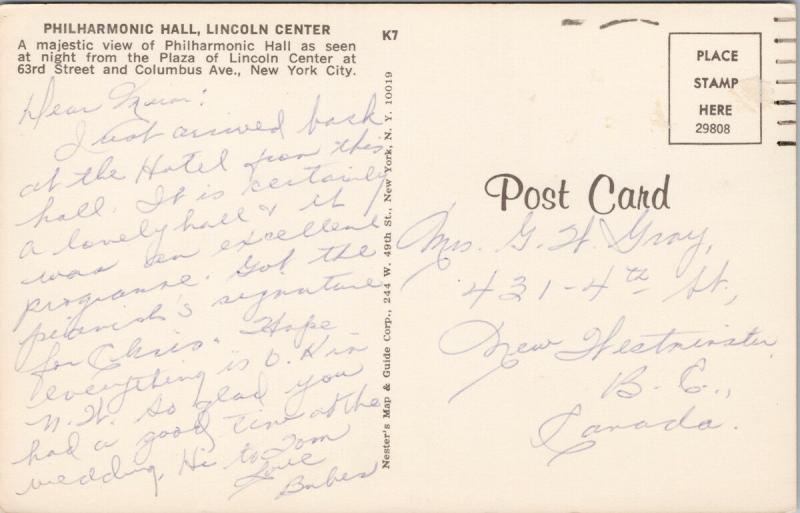 PHILHARMONIC HALL, LINCOLN CENTER
A majestic view of Philharmonic Hall as seen
at night from the Plaza of Lincoln Center at
63rd Street and Columbus Ave., New York City.
K7
Dear
I just arrived back
at the Hotel from this
hall. It is certainly
a lovely hall & it
was an excellent
programme. Got the
pianist's signature
for Chris. Hope
everything is O.K in
N.W. So glad you
had a good time at the
wedding. Hi to Tom
Love
Babes
Nester's Map & Guide Corp., 244 W. 49th St., New York, N. Y. 10019
PLACE
STAMP
HERE
29808
Post Card
Mrs. G. W. Gray,
431-4th St,
New Westminster
B. C.,
Canada.